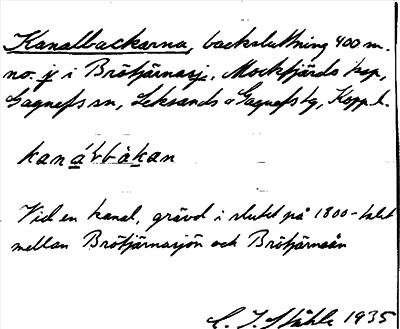 Kanalbackarna, backsluttning 400 m.
no. i Brötjärnasj., Mockfjärds kap,
Gagnefs sn, Leksands o Gagnefs tg, Kopp. l.
kanálbàkan
Vid en kanal, grävd i slutet på 1800-talet
mellan Brötjärnasjön och Brötjärnaån
C. I. Ståhle 1935